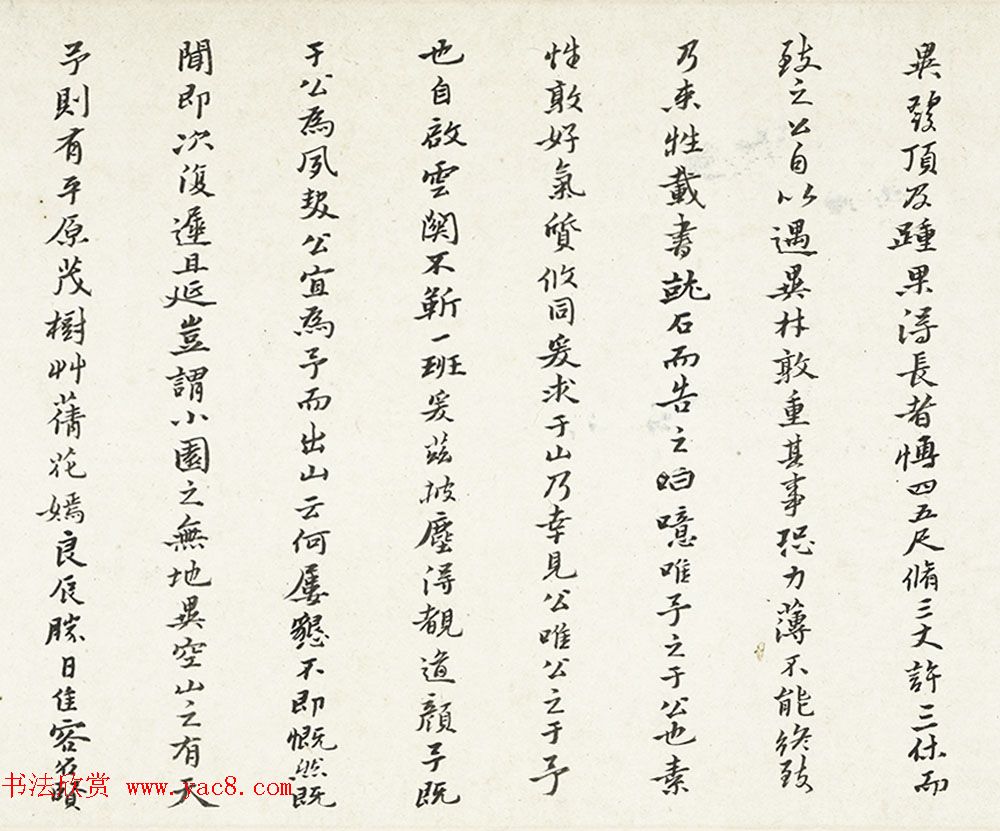 異發頂及踵果得長者慱四五尺脩三丈許三休而
致之公自以遇異材敦重其事恐力薄不能終致
乃束牲載書就石而告之曰噫唯予之于公也素
性敦好氣質攸同爰求于山乃幸見公唯公之于予
也自啟雲關不靳一班爰茲披塵得覩道顏予既
于公為夙契公宜為予而出山云何屢懇不即慨然既
聞即次復遲且延豈謂小園之無地異空山之有天
予則有平原茂樹艸蒨花嫣良辰勝日佳客名賢
书法欣赏 www.yac8.com